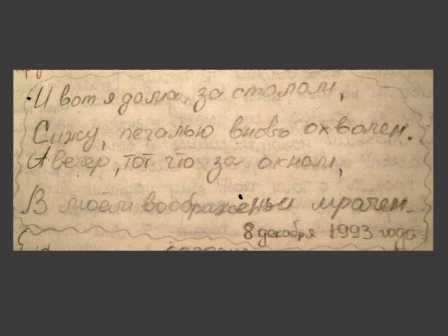 И вот я дома, за столом,
Сижу, печалью вновь охвачен.
А вечер, тот что за окном,
В моём воображеньи мрачен.
8 декабря 1993 года